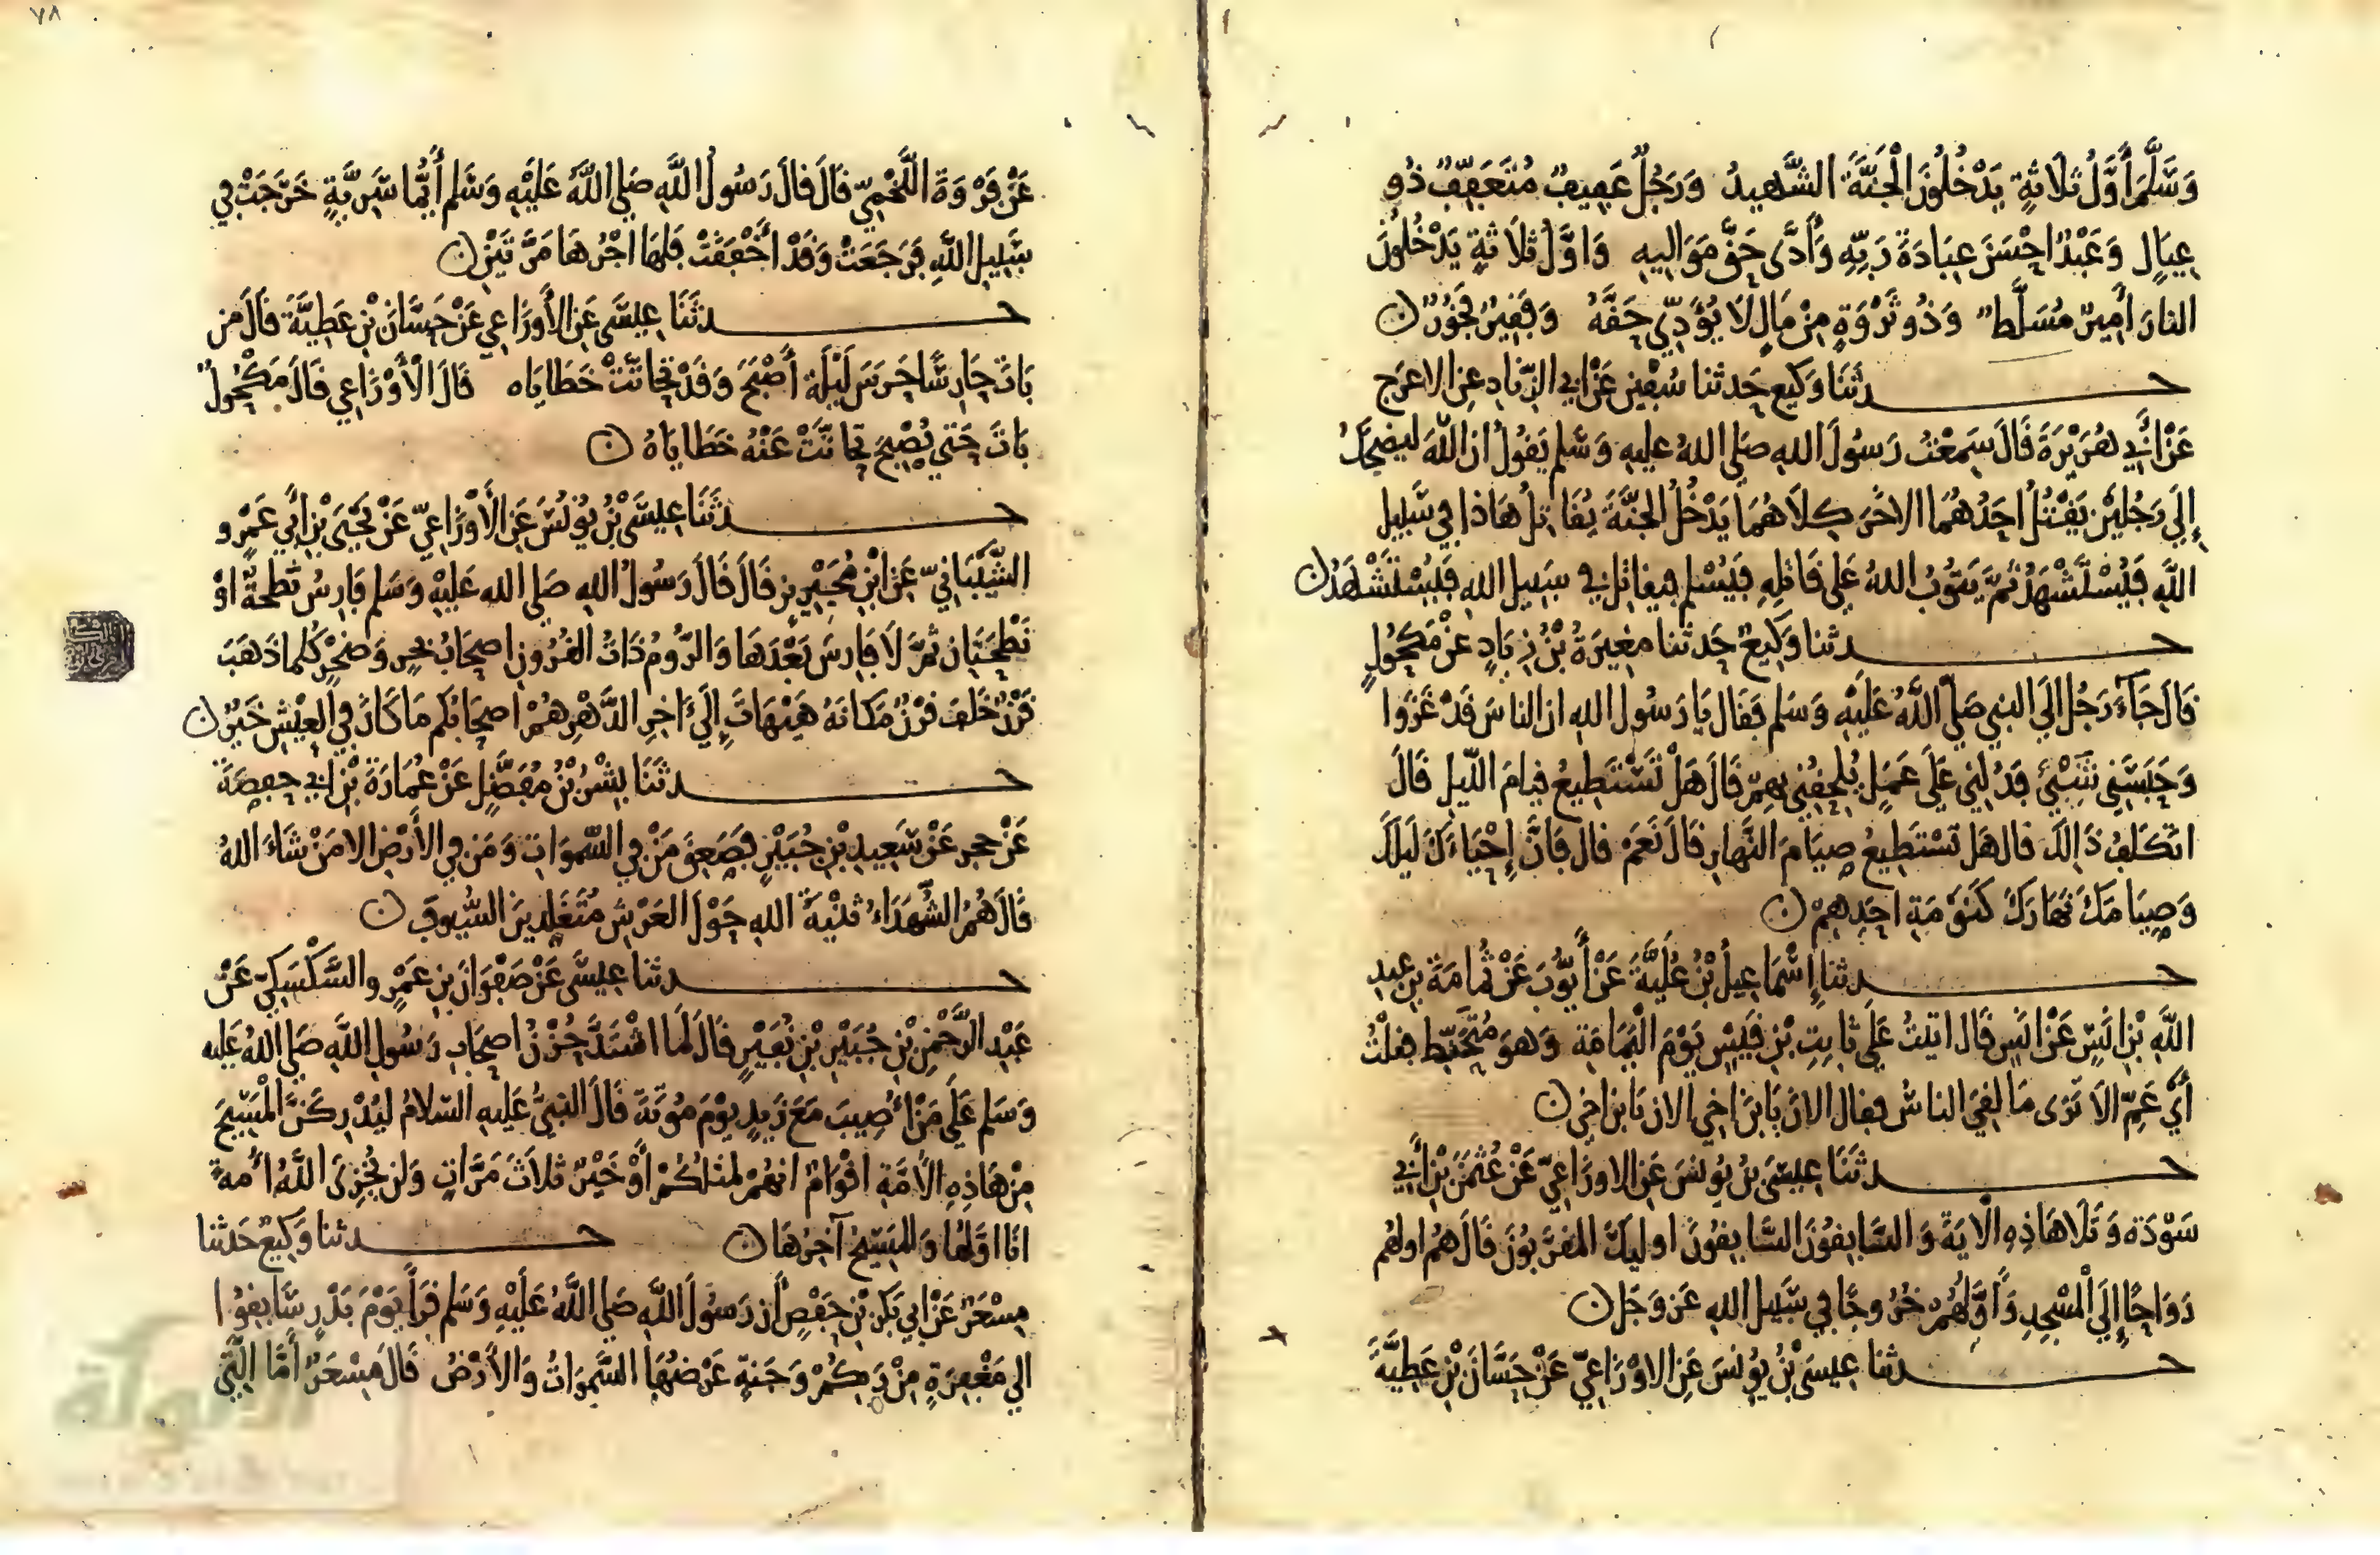 وَسَلَّمَ أَوَّلُ ثَلَاثَةٍ يَدْخُلُونَ الْجَنَّةَ الشَّهِيدُ وَرَجُلٌ عَفِيفٌ مُتَعَفِّفٌ ذُو
عِيَالٍ وَعَبْدٌ احْسَنَ عِبَادَةَ رَبِّهِ وَأَدَّى حَقَّ مَوَالِيهِ وَاوَّلُ ثَلَاثَةٍ يَدْخُلُونَ
النارَ أَمِيرٌ مُسَلَّطٌ وَذُو ثَرْوَةٍ مِنْ مَالٍ لَا يُؤَدِّي حَقَّهُ وَفَقِيرٌ فَخُورٌ ن
حدثَنَا وَكِيع حَدثنا سُفين عَنْ ابي الزِّنادِ عنِ الاعرَج
عَنْ أَبِي هُرَيْرَةَ قَالَ سَمِعْتُ رَسُولَ اللهِ صَلى اللهُ عليهِ وَسَّلم يَقُولُ ان اللَّهَ ليضحَكُ
إِلَى رَجُلَيْنِ يَقْتُلُ احَدُهُمَا الاخَرَ كِلَاهُمَا يَدْخُلُ الجَنَّةَ يُقَاتِلُ هَاذَا فِي سَبِيلِ
اللَّهِ فَيُسْتَشْهَدُ ثُمَّ يَتُوبُ اللهُ عَلَى قَاتِلِهِ فَيُسْلِم فيقاتل في سَبِيلِ اللهِ فَيُسْتَشْهَدُ ن
حدثنا وَكِيعٌ حَدثنا مغِيرَةُ بْنُ زِيَادٍ عَنْ مَكْحُولٍ
قَالَ جَآءَ رَجُل إلَى النبي صَلَّى اللَّهُ عَلَيْهِ وَسَلم فَقَال يَا رَسُول اللهِ ان الناسَ قَدْ غَزَوا
وَحَبَسَنِي شَيْئٌ فَدُلنِي عَلَى عَمَلٍ يُلحِقُنِي بهِمْ قَالَ هَلْ تَسْتَطِيعُ قِيامَ اللَّيلِ قَالَ
اتكَلفُ ذَالِكَ قال هَل تسْتَطِيعُ صِيَامَ النَّهَارِ قَالَ نَعَمْ قال فَانَّ إِحْيَاءَكَ لَيلَكَ
وَصِيَامَكَ نَهَارَكَ كَنَوْمَةِ احَدِهِمْ ن
حدثنا إِسْمَاعِيلُ بْنُ عُلَيَّةَ عَنْ أَيُّوبَ عَنْ ثُمَامَةَ بنِ عبدِ
اللَّهِ بْنِ انَسٍ عَنْ انَسٍ قَالَ اتيتُ عَلَى ثَابِتِ بْنِ قَيْسٍ يَوْمَ الْيَمَامَةِ وَهوَ مُتَحَنِّط فقلتُ
أَيْ عَمِّ الَا تَرَى مَا لقِيَ الناسُ فقال الانَ يَابنَ اخِي الان يَابن اخِي ن
حدثَنَا عِيسَى بنُ يُونسَ عَنِ الاوزَاعِيِّ عَنْ عُثمَنَ بْنِ أَبِي
سَوْدَة وَتَلَا هَاذِهِ الْآيَةَ وَالسَّابِقُونَ السَّابِقُونَ اوليكَ المقرَّبُونَ قَالَ هُم اولهُم
رَوَاحًا إِلَى الْمَسْجِدِ وَأَوَّلهُمْ خُرُوجًا فِي سَبيلِ اللهِ عَز وَجَل ن
حدثنا عِيسَى بْنُ يُونسَ عَنِ الاوْزَاعِيِّ عَنْ حَسَّانَ بْنِ عَطِيَّةَ
٧٨
عَنْ فَرْوَةَ اللَّخْمِيِّ قَالَ قالَ رَسُولُ اللَّهِ صَلى اللَّهُ عَلَيْهِ وَسَلم أَيُّمَا سَرِيَّةٍ خَرَجَتْ فِي
سَبِيلِ اللَّهِ فَرَجَعَتْ وَقَدْ أَخْفَقَتْ فَلَهَا اجْرُهَا مَرَّتَيْنِ ن
حدثَنَا عِيسَى عَنِ الأَوزَاعِي عَنْ حَسَّانَ بْنِ عَطِيَّةَ قَالَ من
بَاتَ حَارِسًا حَرَسَ لَيْلَة أَصْبَحَ وَقَدْ تَحَاتَّتْ خَطَايَاه قَالَ الْأَوْزَاعِي قَالَ مَكْحُولٌ
بَاتَ حَتى يُصْبِحَ تحَاتَّتْ عَنْهُ خَطَايَاهُ ن
حدثَنَا عِيسَى بْنُ يُونُسَ عَنِ الأَوْزَاعِيِّ عَنْ يَحْيَى بْنِ أَبِي عَمْرو
الشَّيْبَانِيِّ عَنِ ابْنِ مُحَيْرِيزٍ قَالَ قَالَ رَسُولُ اللهِ صَلى الله عَلَيْهِ وَسَلم فَارِسُ نَطْحَةٌ اوْ
نَطْحَتَانِ ثُمَّ لَا فَارِسَ بَعْدَهَا وَالرُّومُ ذَاتُ القُرُونِ اصحَابُ بَحْرٍ وَصَخْرٍ كُلما ذَهَبَ
قَرْنٌ خَلَفَ قَرْنٌ مَكَانَهُ هَيْهَاتَ إِلَى ءَاخِرِ الدَّهْرِ هُمْ اصحَابُكم مَا كَانَ فِي الْعِيْشِ خَيْرٌ ن
حدثَنَا بِشْرُ بْنُ مُفَضَّلٍ عَنْ عُمَارَةَ بْنِ ابي حفصَةَ
عَنْ حجرٍ عَنْ سَعِيدِ بْنِ جُبَيْرٍ فَصَعِقَ مَنْ فِي السَّموَاتِ وَمَن فِي الأَرْضِ الا مَنْ شَاءَ اللهُ
قَالَ هُمُ الشُّهَدَاءُ ثنيَةُ اللهِ حَوْلَ العَرْشِ مُتَقَلدِينَ السُّيُوفَ ن
حدثنا عِيسَى عَنْ صَفْوَانَ بنِ عَمْرٍو السَّكْسَكِيِّ عَنْ
عَبْدِ الرَّحْمنِ بْنِ جُبَيْرِ بْنِ نُفَيْرٍ قَالَ لَمَّا اشْتَدَّ حُزْنُ اصحَابِ رَسُولِ اللَّهِ صَلى اللهُ عَليه
وَسَلم عَلَى مَنْ أُصِيبَ مَعَ زَيدٍ يَوْمَ مُوتَةَ قَالَ النبيُّ عَلَيهِ السَّلامُ ليُدْرِكَنَّ الْمَسِيحَ
مِنْ هَاذِهِ الأُمَّةِ اقْوَامٌ انهُمْ لمثلكُمْ أَوْ خَيْرٌ ثَلَاثَ مَرَّاتٍ وَلن يُخْزِىَ اللَّهُ أُمةً
انَا اوَّلهَا وَالمَسِيحُ آخِرُهَا ن حدثنا وَكِيعٌ حَدثنا
مِسْعَرٌ عَنْ ابي بَكرِ بْنِ حَفْصٍ أَن رَسُولَ اللَّهِ صَلى اللَّهُ عَلَيْهِ وَسَلم قَرَأَ يَوْمَ بَدْرٍ سَابِقُوا
الى مَغْفِرَةٍ مِنْ رَبِكُمْ وَجَنةٍ عَرْضُهَا السَّمَوَاتُ وَالأَرْضُ قَالَ مِسْعَرٌ أَمَّا الَّتِي
الألوكة